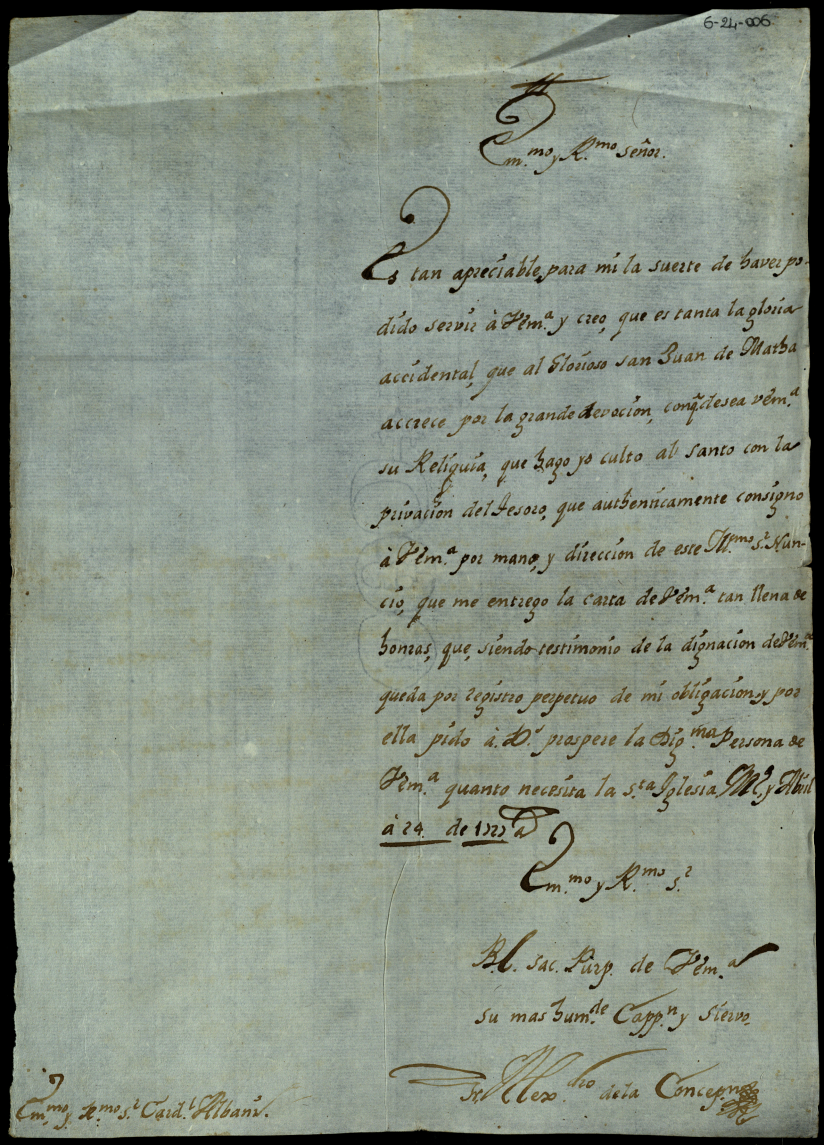 6-24-006
Em.mo y R.mo señor.
Es tan apreciable, para mi la suerte de haver po-
dido servir à Vem.a y creo, que es tanta la gloria
accidental, que al Glorioso san Juan de Matha
accrece por la grande devocion, conq̃ desea vem.a
su Reliquia, que hago yo culto al santo con la
privacion del Tesoro, que authenticamente consigno
à Vem.a por mano, y direccion de este Il.mo s.r Nun-
cio, que me entrego la carta de Vem.a tan llena de
honras, que, siendo testimonio de la dignacion de Vem.a
queda por registro perpetuo de mi obligacion, y por
ella pido à D.s prospere la Dig.ma Persona de
Vem.a quanto necesita la s.ta Iglesia, M.d y Abril
à 24 de
Em.mo y R.mo s.r
B.l. sac. Purp. de Vem.a
su mas hum.de Capp.n y siervo.
fr. Alex.dro de la Concep.n
Em.mo y R.mo s.r Card.l Albani.